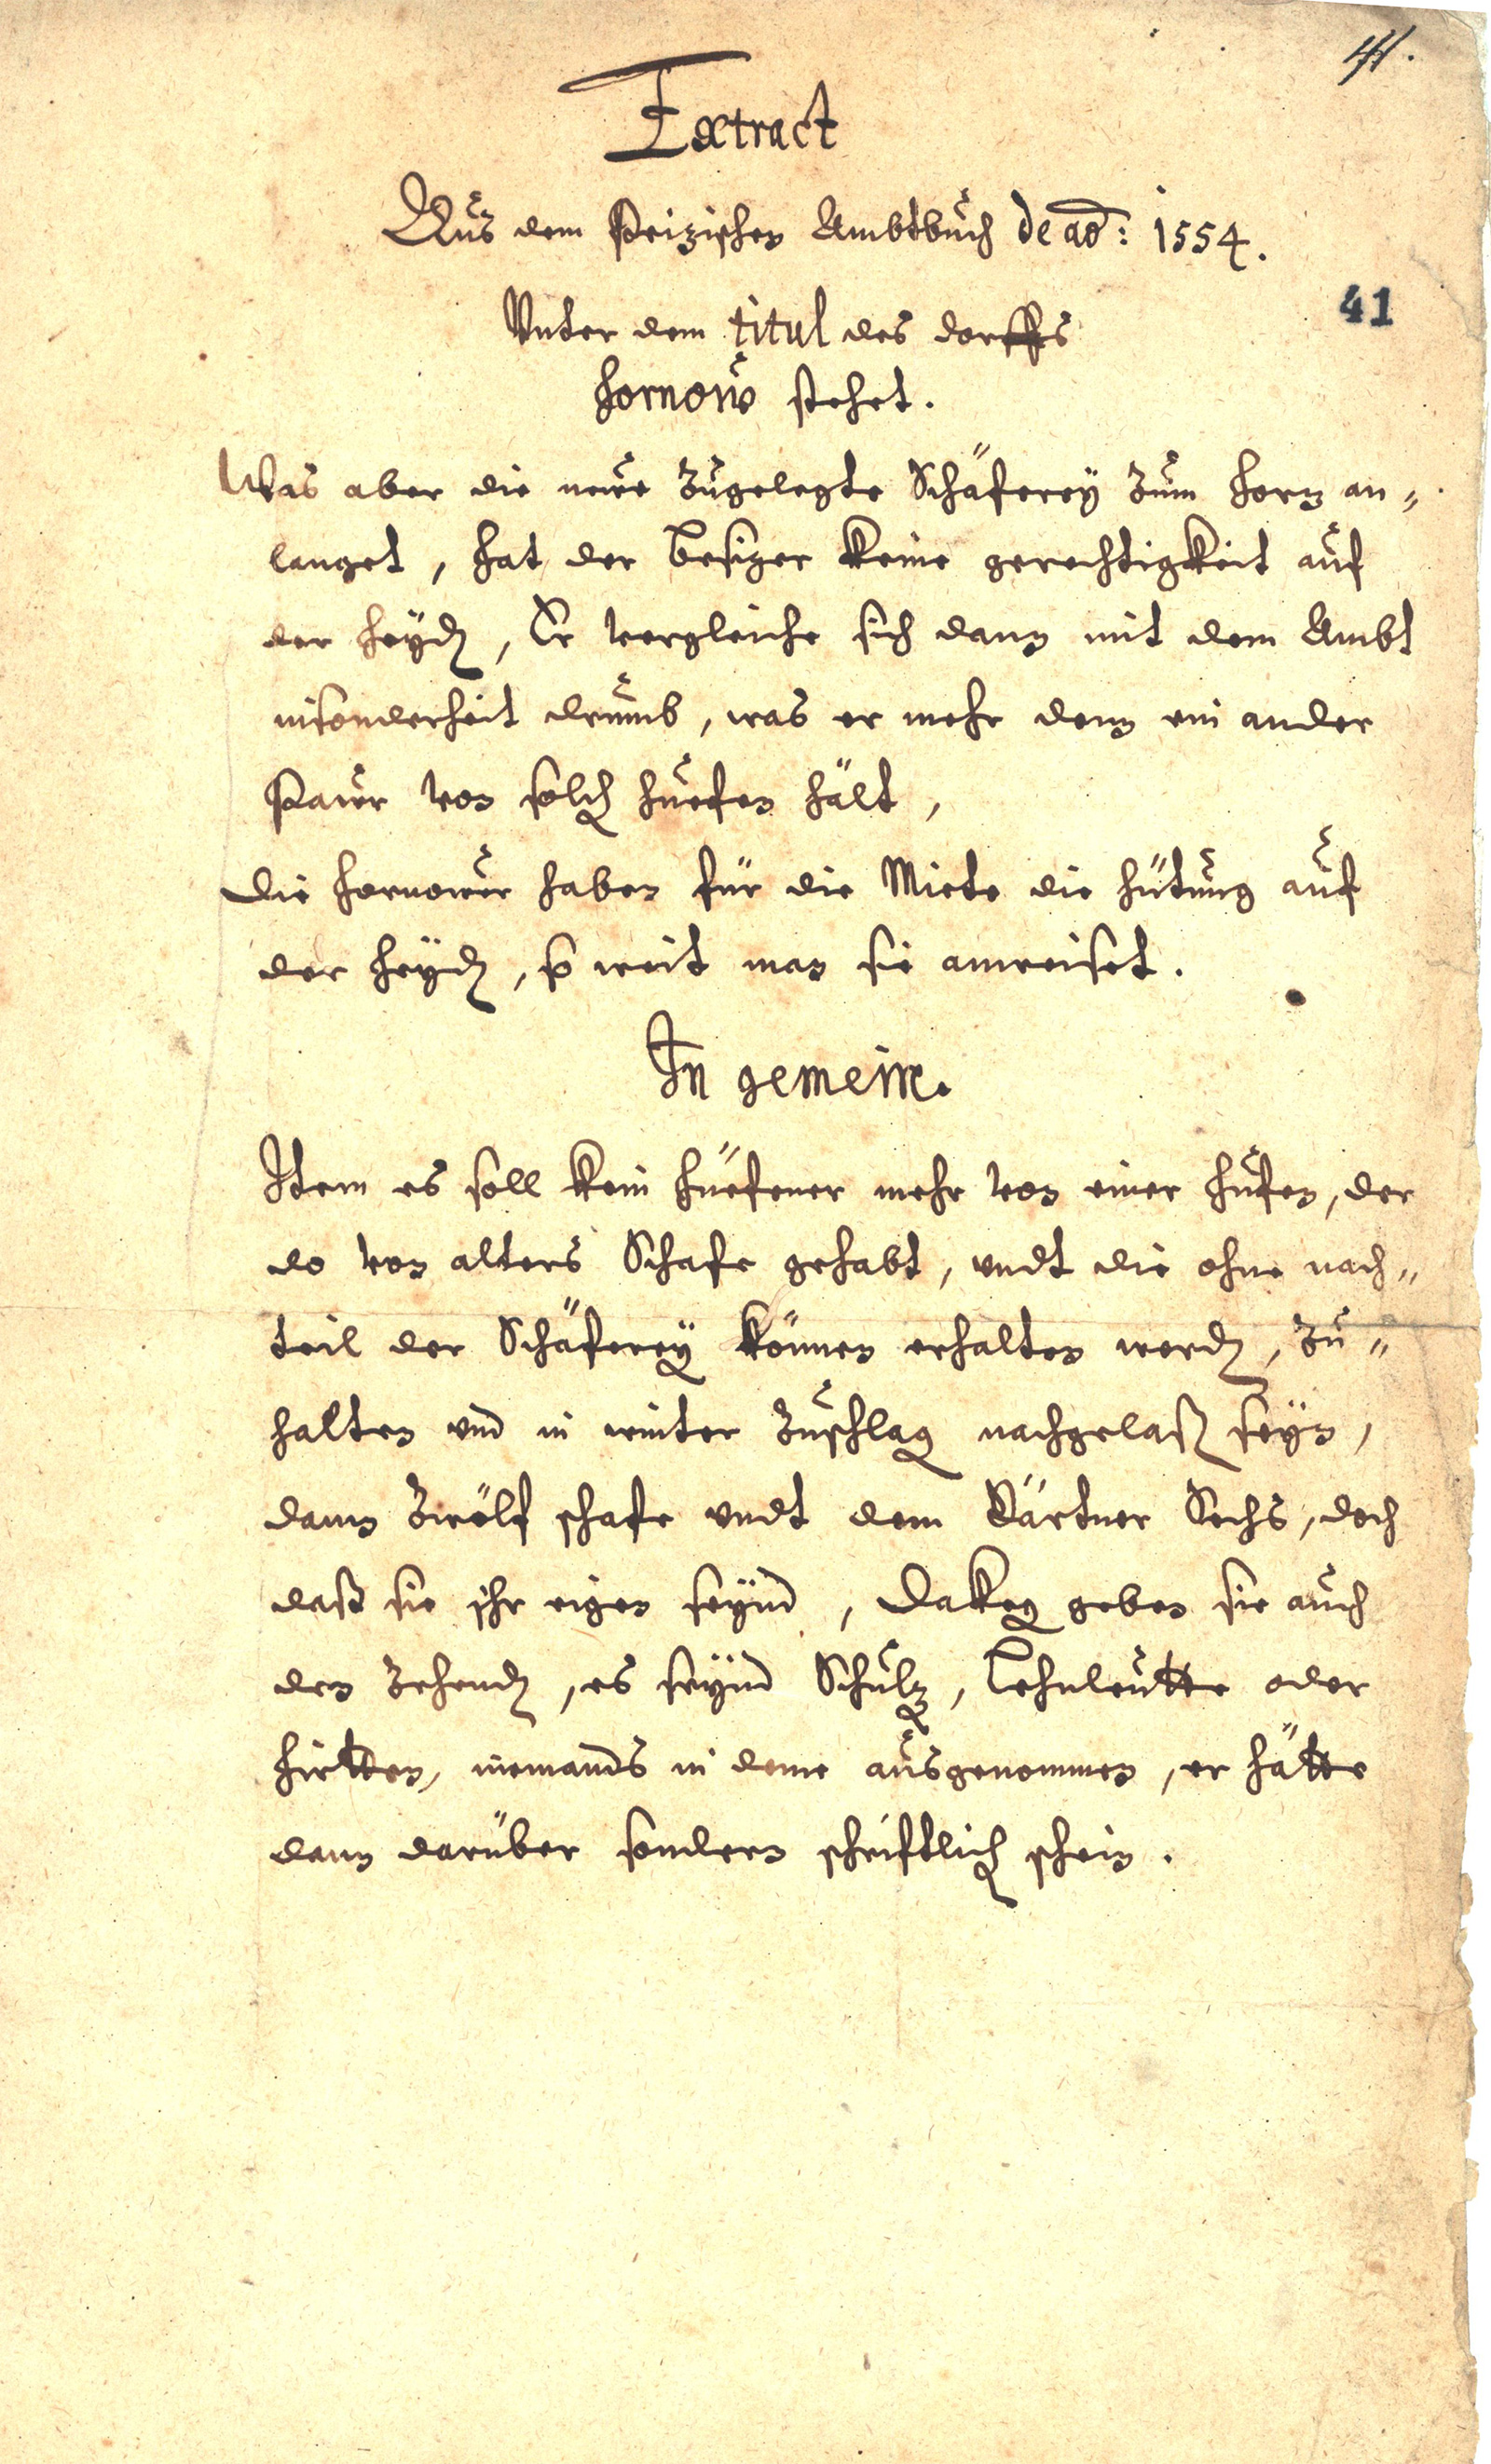 41.
Extract
Auß dem Peizischen Ambtbuch de aõ: 1554.
Vnter dem titul des dorffs
41
Hornow stehet.
Was aber die newe zugelegte Schäferey zum Horn an„
langet, hat der besizer keine gerechtigkeit auf
der Heyden, Er vergleiche sich dann mit dem Ambt
insonderheit drumb, was er mehr denn ein ander
Pawr von solchen huefen hält,
Die Hornower haben für die Miete die hütung auf
der Heyden, so weit man sie anweiset.
In gemein.
Item es soll kein Hüefener mehr von einer Hufen, der
do von alters Schafe gehabt, undt die ohne nach„
teil der Schäferey können erhalten werden, zu„
halten und in winter zuschlag nachgelaßen seyn,
dann zwölf schafe undt dem Kärtner Sechs, doch
daß sie ihr eigen seynd, Dakegen geben sie auch
den Zehenden, es seynd Schulzen, Lehnleutte oder
Hirtten, niemands in deme außgenommen, er hätte
dann darüber sondern schriftlichen schein.